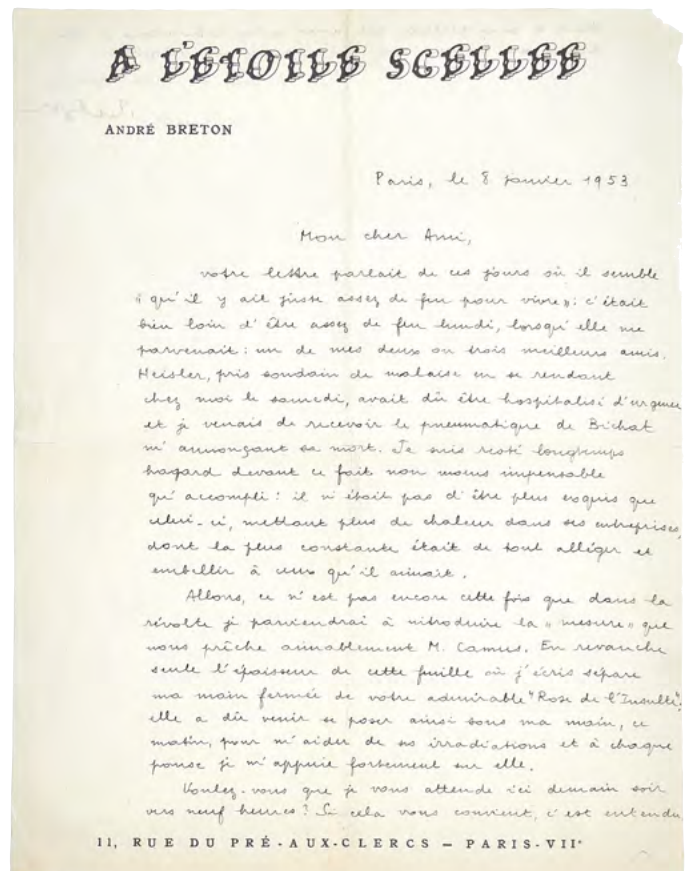 A L'ÉTOILE SCELLÉE
ANDRÉ BRETON
Paris, le 8 janvier 1953
Mon cher Ami,
votre lettre parlait de ces jours où il semble
« qu'il y ait juste assez de feu pour vivre » : c'était
bien loin d'être assez de feu lundi, lorsqu'elle me
parvenait : un de mes deux ou trois meilleurs amis,
Heisler, pris soudain de malaise en se rendant
chez moi le samedi, avait dû être hospitalisé d'urgence
et je venais de recevoir le pneumatique de Bichat
m'annonçant sa mort. Je suis resté longtemps
hagard devant ce fait non moins impensable
qu'accompli : il n'était pas d'être plus exquis que
celui-ci, mettant plus de chaleur dans ses entreprises,
dont la plus constante était de tout alléger et
embellir à ceux qu'il aimait.
Allons, ce n'est pas encore cette fois que dans la
révolte je parviendrai à introduire la « mesure » que
nous prêche aimablement M. Camus. En revanche
seule l'épaisseur de cette feuille où j'écris sépare
ma main fermée de votre admirable "Rose de l'Insulte" :
elle a dû venir se poser ainsi sous ma main, ce
matin, pour m'aider de ses irradiations et à chaque
pause je m'appuie fortement sur elle.
Voulez-vous que je vous attende ici demain soir
vers neuf heures ? Si cela vous convient, c'est entendu
11, RUE DU PRÉ-AUX-CLERCS – PARIS-VIIe